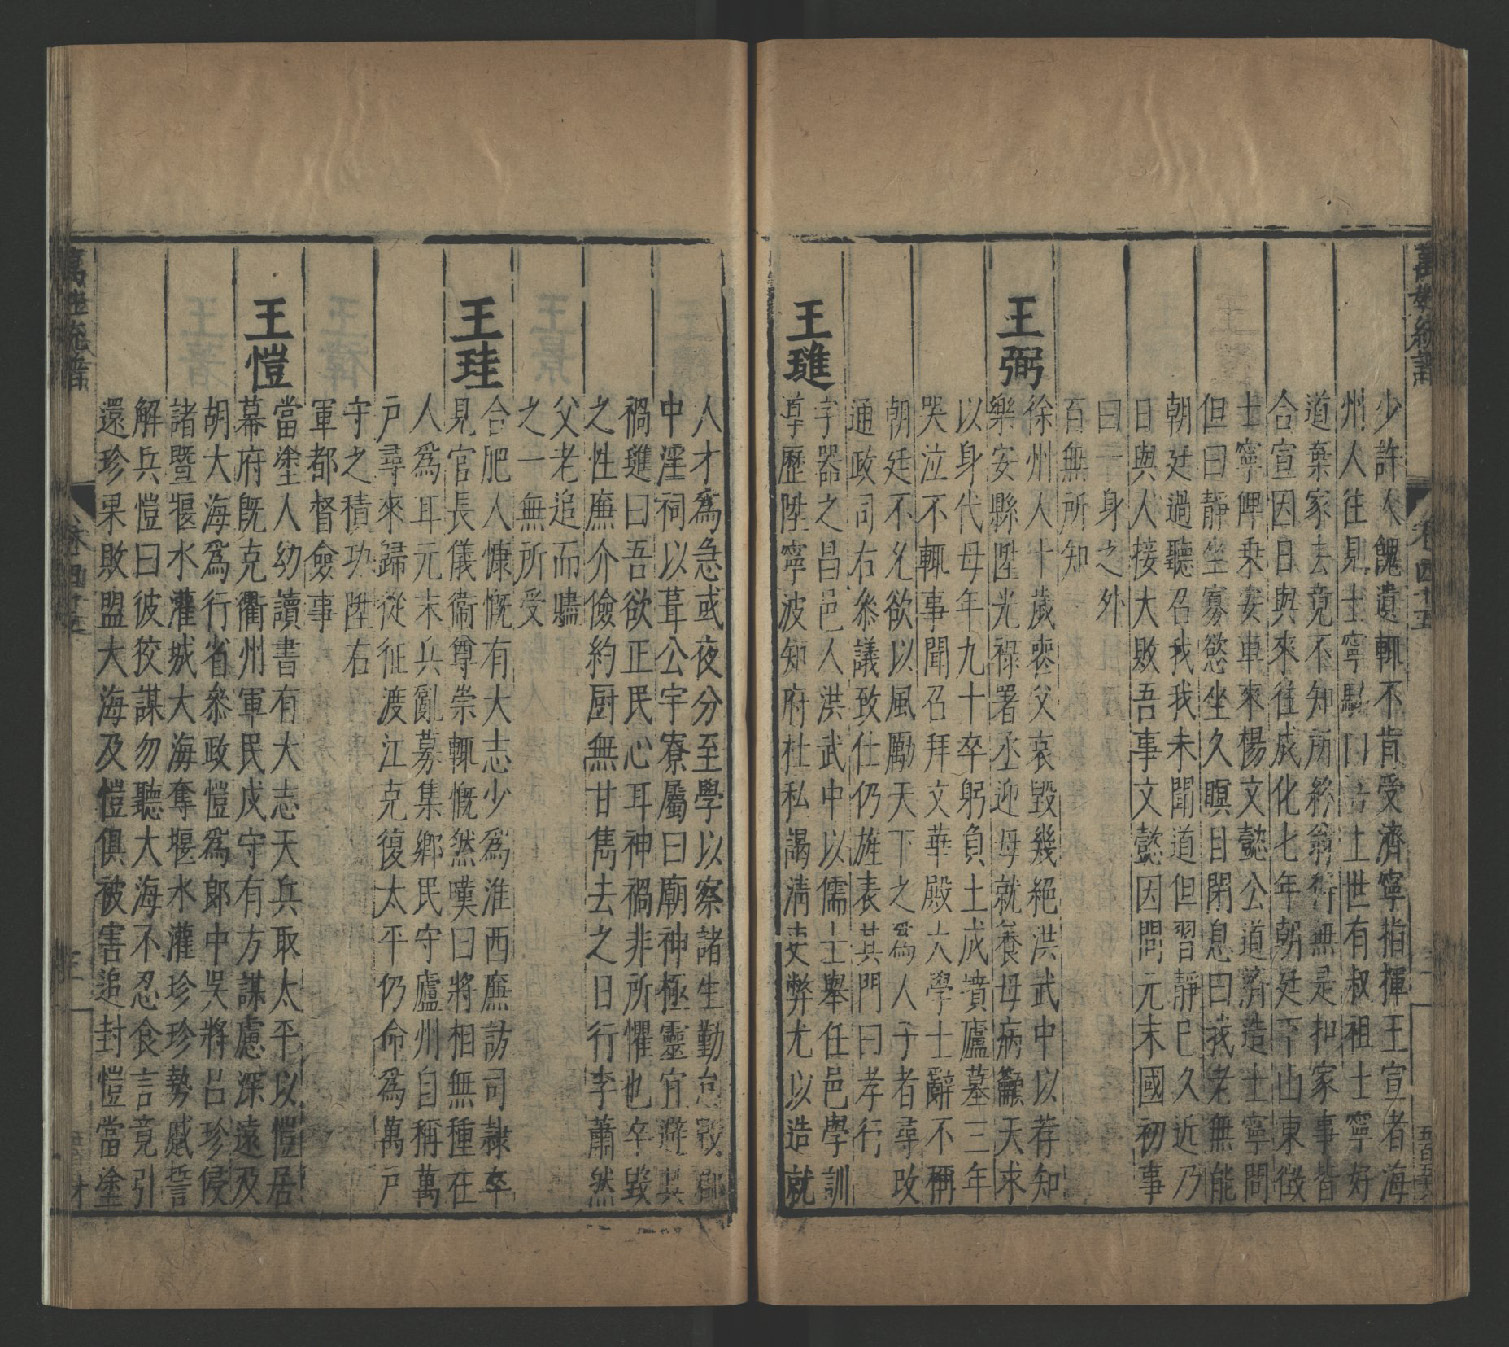 萬姓統譜
卷四十五
少許人餽遺輒不肯受濟寧指揮王宣者海
州人往見士寧默曰吾士世有叔祖士寧好
道棄家去竟不知所終翁
無是和家事皆
合宣因日與來往成化七年朝廷下山東徵
士寧畀乘安車來楊文懿公道濟造士寧問
但曰靜坐寡慾坐久瞑目閉息曰我老無能
朝廷過聽召我我未聞道但習靜已久近乃
日與人接大敗吾事文懿因問元末國初事
曰一身之外
百無所知
王弼
徐州人十歲喪父哀毀幾絕洪武中以荐知
樂安縣陞光祿署丞迎母就養母病籲天求
以身代母年九十卒躬負土成賁廬墓三年
哭泣不輒事聞召拜文華殿大學士辭不稱
朝廷不允欲以風勵天下之為人子者尋改
通政司右叅議致仕仍旌表其門曰孝行
王璡
字器之昌邑人洪武中以儒士舉任邑學訓
導歷陞寧波知府杜私謁淸吏弊尤以造就
人才為急或夜分至學以察諸生勤怠毀郡
中淫祠以葺公宇寮屬曰廟神極靈宜避其
禍璡曰吾欲正民心耳神禍非所懼也卒毀
之性廉介儉約厨無甘雋去之日行李蕭然
父老追而贐
之一無所受
王珪
合肥人慷慨有大志少為淮西廉訪司隷卒
見官長儀衞尊崇輒慨然嘆曰將相無種在
人爲耳元末兵亂募集鄉民守廬州自稱萬
戶尋來歸從征渡江克復太平仍命爲萬戶
守之積功陞右
軍都督僉事
王愷
當塗人幼讀書有大志天兵取太平以愷居
幕府既克衢州軍民成守有方謀慮深遠及
胡大海爲行省叅政愷爲郞中吳將呂珍侵
諸曁堰水灌城大海奪堰水灌珍珍勢慼誓
解兵愷曰彼狡謀勿聽大海不忍食言竟引
還珍果敗盟大海及愷俱被害追封愷當塗
萬姓統譜
卷四十五